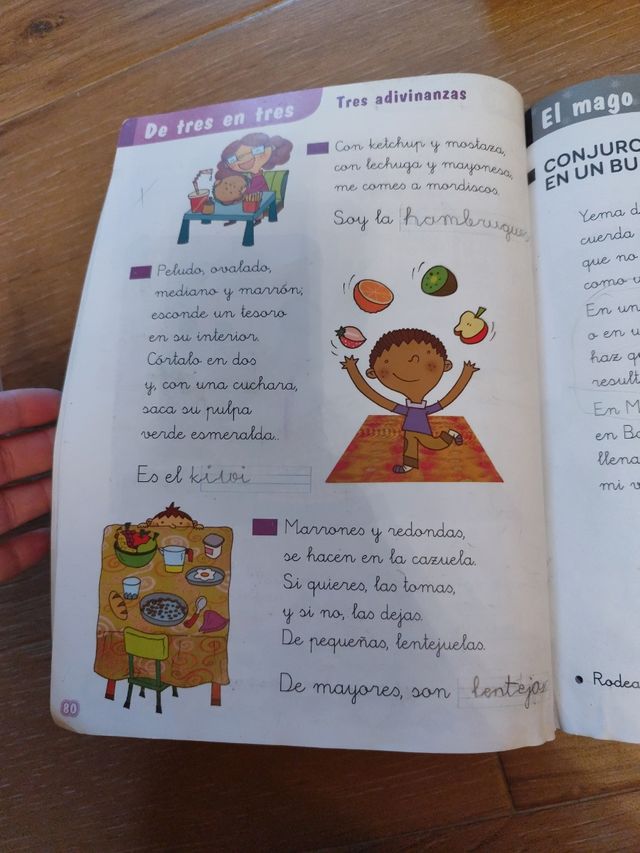 De tres en tres
Tres adivinanzas
Con ketchup y mostaza,
con lechuga y mayonesa,
me comes a mordiscos.
Soy la hamburgue
Peludo, ovalado,
mediano y marrón;
esconde un tesoro
en su interior.
Córtalo en dos
y, con una cuchara,
saca su pulpa
verde esmeralda..
Es el kiwi
Marrones y redondas,
se hacen en la cazuela.
Si quieres, las tomas,
y si no, las dejas.
De pequeñas, lentejuelas.
De mayores, son lentejas
80
El mago
CONJURO
EN UN BU
Yema d
cuerda
que no
como u
En un
o en u
haz q
result
En M
en Ba
llena
mi v
Rodea